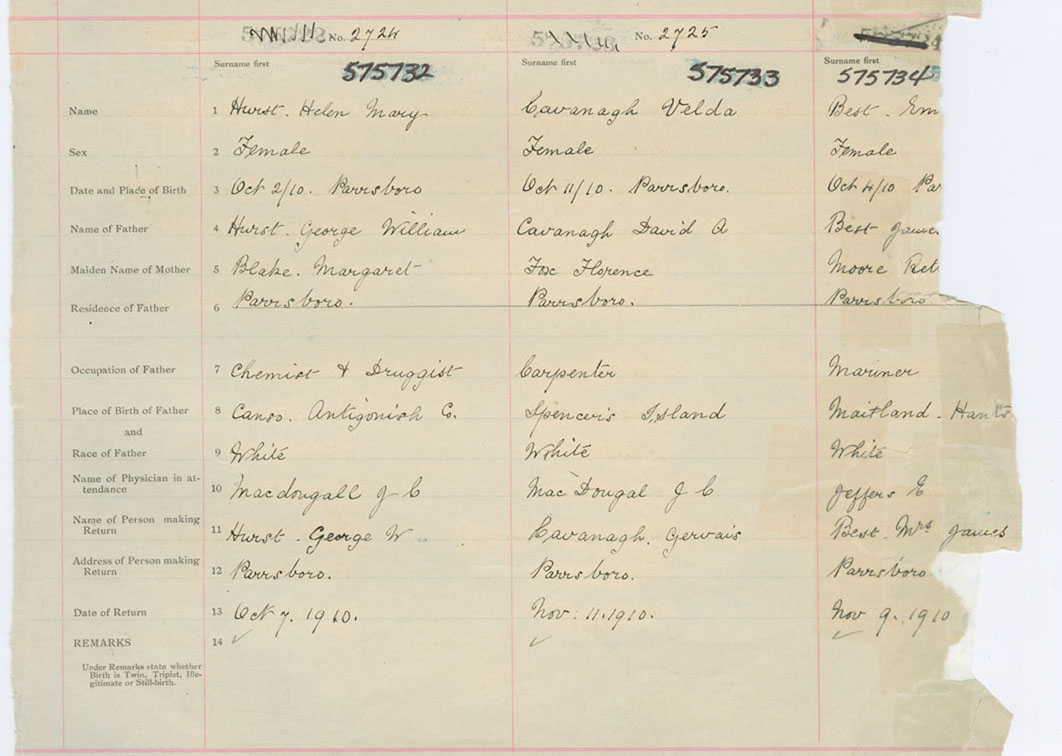 No. 2724 No. 2725
Surname first Surname first Surname first
575732 575733 575734
Name 1 Hurst. Helen Mary Cavanagh Velda Best. Em
Sex 2 Female Female Female
Date and Place of Birth 3 Oct 2/10. Parrsboro Oct 11/10. Parrsboro. Oct 4/10 Pa
Name of Father 4 Hurst. George William Cavanagh David A Best James
Maiden Name of Mother 5 Blake. Margaret Fox Florence Moore Ret
Residence of Father 6 Parrsboro. Parrsboro. Parrsboro
Occupation of Father 7 Chemist & Druggist Carpenter Mariner
Place of Birth of Father 8 Canso. Antigonish Co. Spencer's Island Maitland. Hants
and
Race of Father 9 White White White
Name of Physician in at-
tendance 10 Macdougall J C MacDougal J C Jeffers E
Name of Person making
Return 11 Hurst. George W Cavanagh. Gervais Best. Mrs James
Address of Person making
Return 12 Parrsboro. Parrsboro. Parrsboro
Date of Return 13 Oct 7. 1910. Nov. 11.1910. Nov 9. 1910
REMARKS 14 ✓ ✓ ✓
Under Remarks state whether
Birth is Twin, Triplet, Ille-
gitimate or Still-birth.